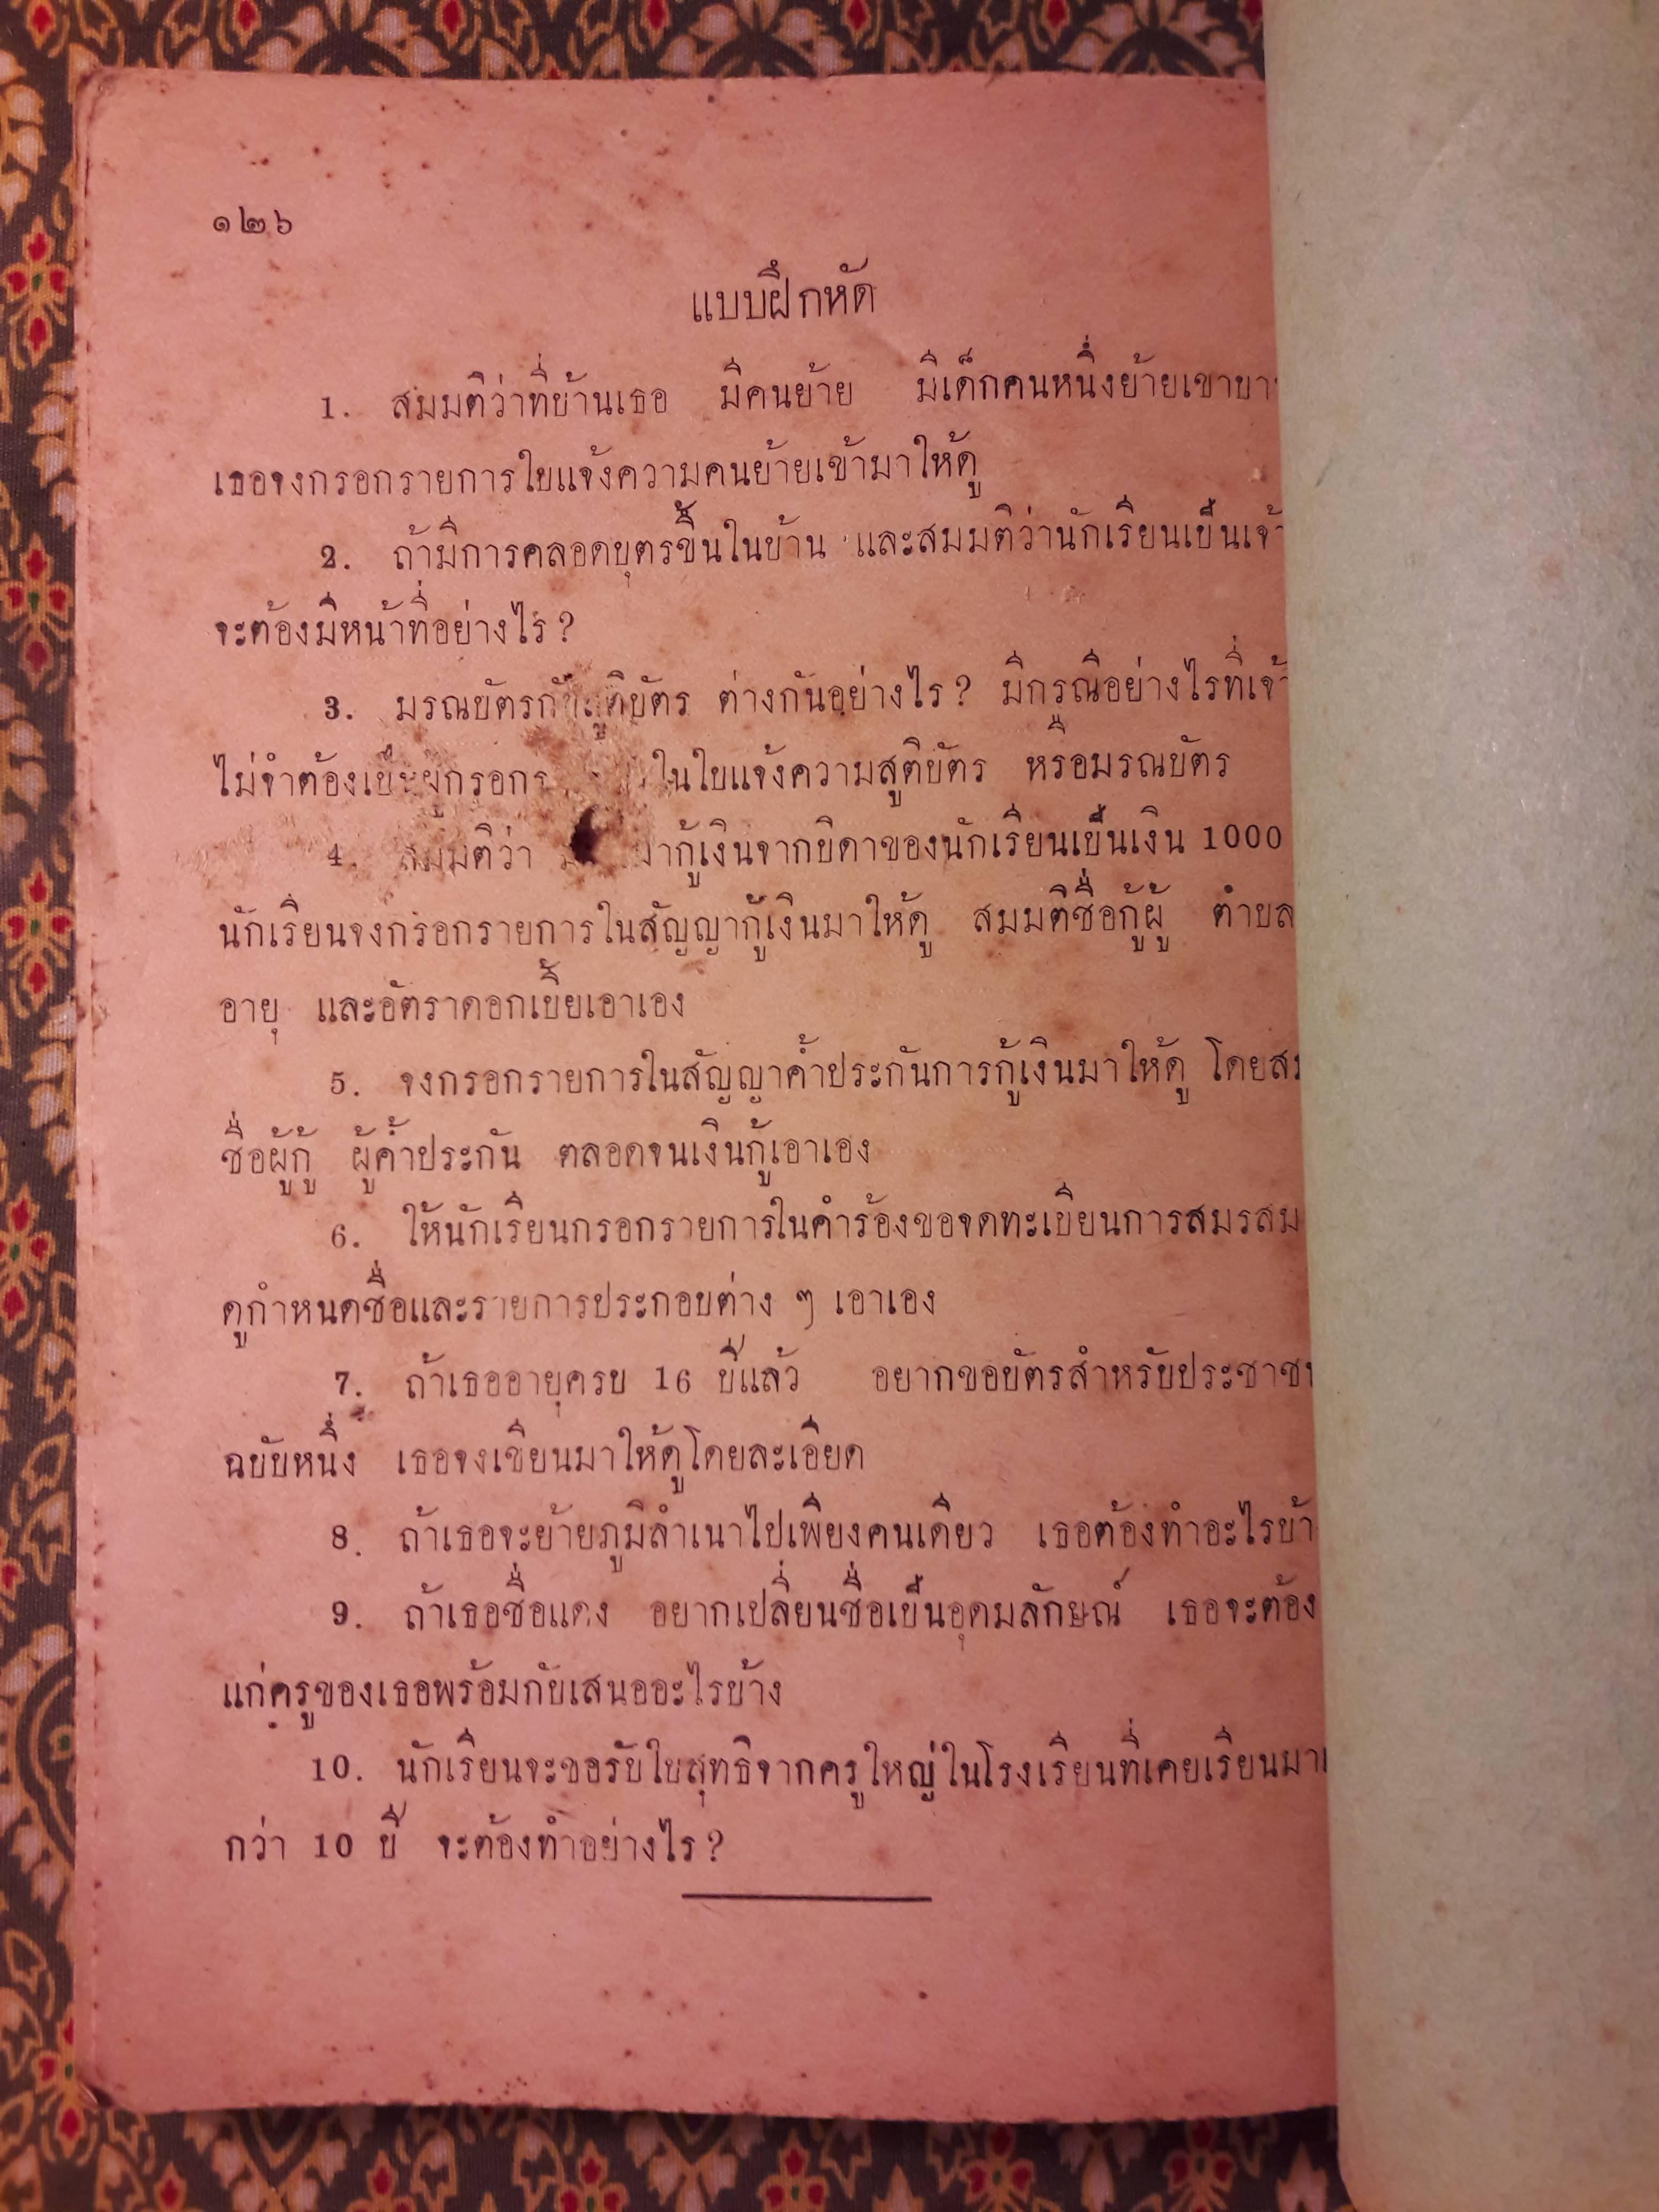 ๑๒๖
แบบฝึกหัด
1. สมมติว่าที่บ้านเธอ มีคนย้าย มีเด็กคนหนึ่งย้ายเข้า
เธอจงกรอกรายการใบแจ้งความคนย้ายเข้ามาให้ดู
2. ถ้ามีการคลอดบุตรขึ้นในบ้าน และสมมติว่านักเรียนเป็นเจ้า
จะต้องมีหน้าที่อย่างไร?
3. มรณบัตร ต่างกันอย่างไร? มีกรณีอย่างไรที่เจ้า
ไม่จำต้อง ในใบแจ้งความสูติบัตร หรือมรณบัตร
4. สมมติว่า กู้เงินจากบิดาของนักเรียนเป็นเงิน 1000
นักเรียนจงกรอกรายการในสัญญากู้เงินมาให้ดู สมมติชื่อกู้ผู้ ตำบล
อายุ และอัตราดอกเบี้ยเอาเอง
5. จงกรอกรายการในสัญญาค้ำประกันการกู้เงินมาให้ดู โดย
ชื่อผู้กู้ ผู้ค้ำประกัน ตลอดจนเงินกู้เอาเอง
6. ให้นักเรียนกรอกรายการในคำร้องขอจดทะเบียนการสมรส
ดูกำหนดชื่อและรายการประกอบต่าง ๆ เอาเอง
7. ถ้าเธออายุครบ 16 ปีแล้ว อยากขอบัตรสำหรับ
ฉบับหนึ่ง เธอจงเขียนมาให้ดูโดยละเอียด
8. ถ้าเธอจะย้ายภูมิลำเนาไปเพียงคนเดียว เธอต้องทำอะไร
9. ถ้าเธอชื่อแดง อยากเปลี่ยนชื่อเป็นอุดมลักษณ์ เธอจะต้อง
แก่ครูของเธอพร้อมกับเสนออะไรบ้าง
10. นักเรียนจะขอรับใบสุทธิจากครูใหญ่ในโรงเรียนที่เคยเรียน
กว่า 10 ปี จะต้องทำอย่างไร?